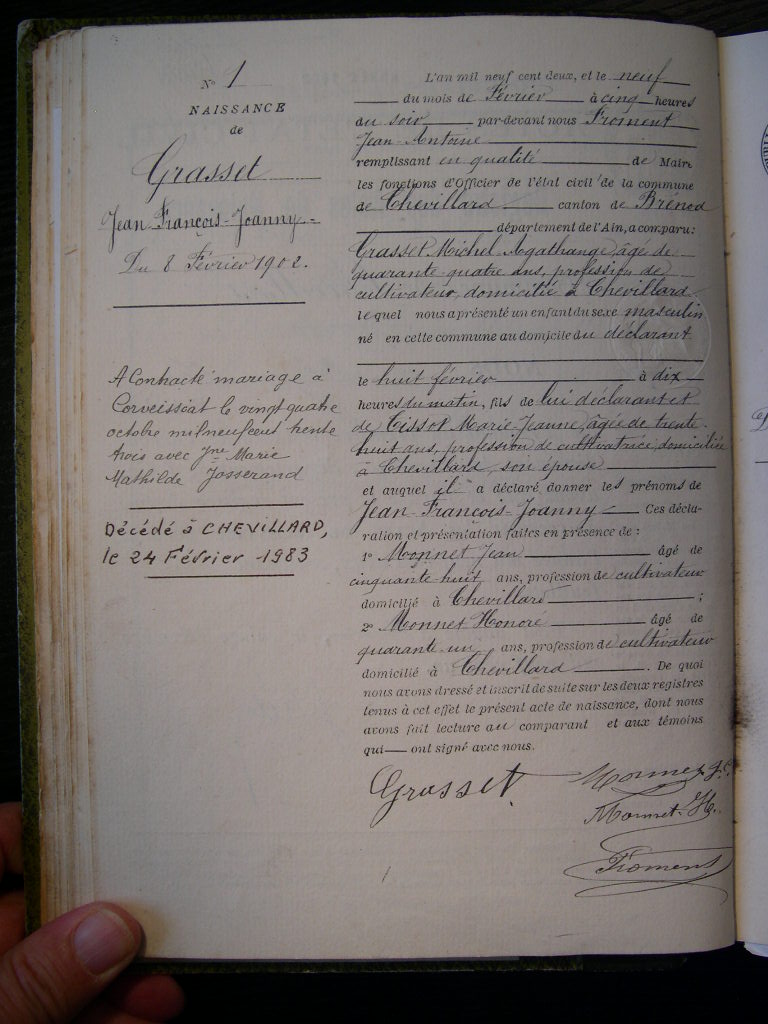 No 1
NAISSANCE
de
Grasset
Jean François-Joanny
Du 8 Février 1902.
A Contracté mariage à
Corveissiat le vingt quatre
octobre mil neuf cent trente
trois avec Jne Marie
Mathilde Josserand
Décédé à CHEVILLARD,
le 24 Février 1983
L'an mil neuf cent deux, et le neuf
du mois de Février à cinq heures
du soir par-devant nous Froment
Jean-Antoine
remplissant en qualité de Maire
les fonctions d'Officier de l'état civil de la commune
de Chevillard canton de Brénod
département de l'Ain, a comparu:
Grasset Michel Agathange, âgé de
quarante quatre ans, profession de
cultivateur, domicilié à Chevillard
lequel nous a présenté un enfant du sexe masculin
né en cette commune au domicile du déclarant
le huit février à dix
heures du matin, fils de lui déclarant et
de Tissot Marie-Jeanne, âgée de trente
huit ans, profession de cultivatrice, domiciliée
à Chevillard, son épouse
et auquel il a déclaré donner les prénoms de
Jean-François-Joanny Ces décla-
ration et présentation faites en présence de:
1º Monnet Jean âgé de
cinquante-huit ans, profession de cultivateur
domicilié à Chevillard ;
2º Monnet Honoré âgé de
quarante-un ans, profession de cultivateur
domicilié à Chevillard . De quoi
nous avons dressé et inscrit de suite sur les deux registres
tenus à cet effet le présent acte de naissance, dont nous
avons fait lecture au comparant et aux témoins
qui ont signé avec nous.
Grasset
Monnet J.
Monnet-H.
Froment